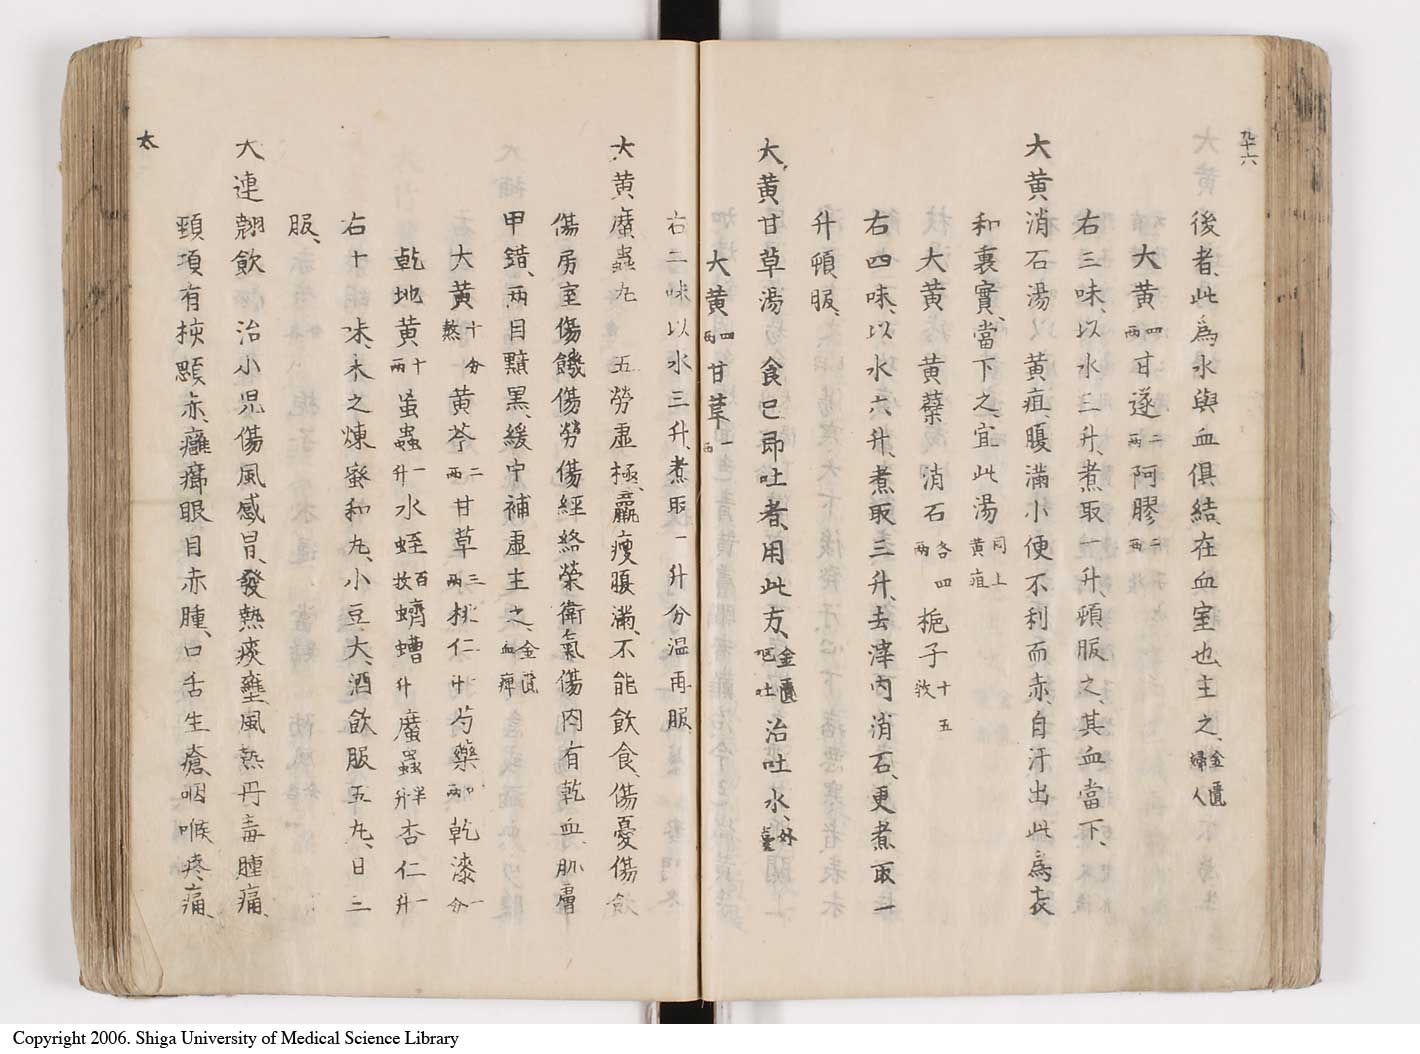 九十六
後者、此為水與血俱結、在血室也、主之、金匱婦人
大黃四兩甘遂二兩阿膠二兩
右三味、以水三升、煮取一升、頓服之、其血當下、
大黃消石湯 黃疸腹滿小便不利而赤、自汗出此為表
和裏實、當下之、宜此湯同上黃疸
大黃 黃蘗 消石各四兩 梔子十五枚
右四味、以水六升、煮取三升、去滓、内消石、更煮取一
升、頓服、
大黃甘草湯 食已即吐者、用此方、金匱嘔吐治吐水、外臺
大黃四兩甘草一兩
右二味以水三升、煮取一升分温再服、
大黃䗪蟲丸 五勞虛極、羸瘦腹滿、不能飲食、傷憂傷飲
傷房室傷饑傷勞傷經絡榮衛氣傷内有乾血、肌膚
甲錯、兩目黯黑、緩中補虛主之、金匱血痺
大黃十分熬黃芩二兩甘草三兩桃仁一升芍藥四兩乾漆一分
乾地黃十兩虽蟲一升水蛭百枚蠐螬一升䗪蟲半升杏仁一升
右十味、末之煉蜜和丸、小豆大、酒飲服五丸、日三
服、
大連翹飲 治小児傷風感冒、發熱痰壅、風熱丹毒腫痛、
頸項有挾顋赤、癰癤眼目赤腫、口舌生瘡、咽喉疼痛、
太
Copyright 2006. Shiga University of Medical Science Library